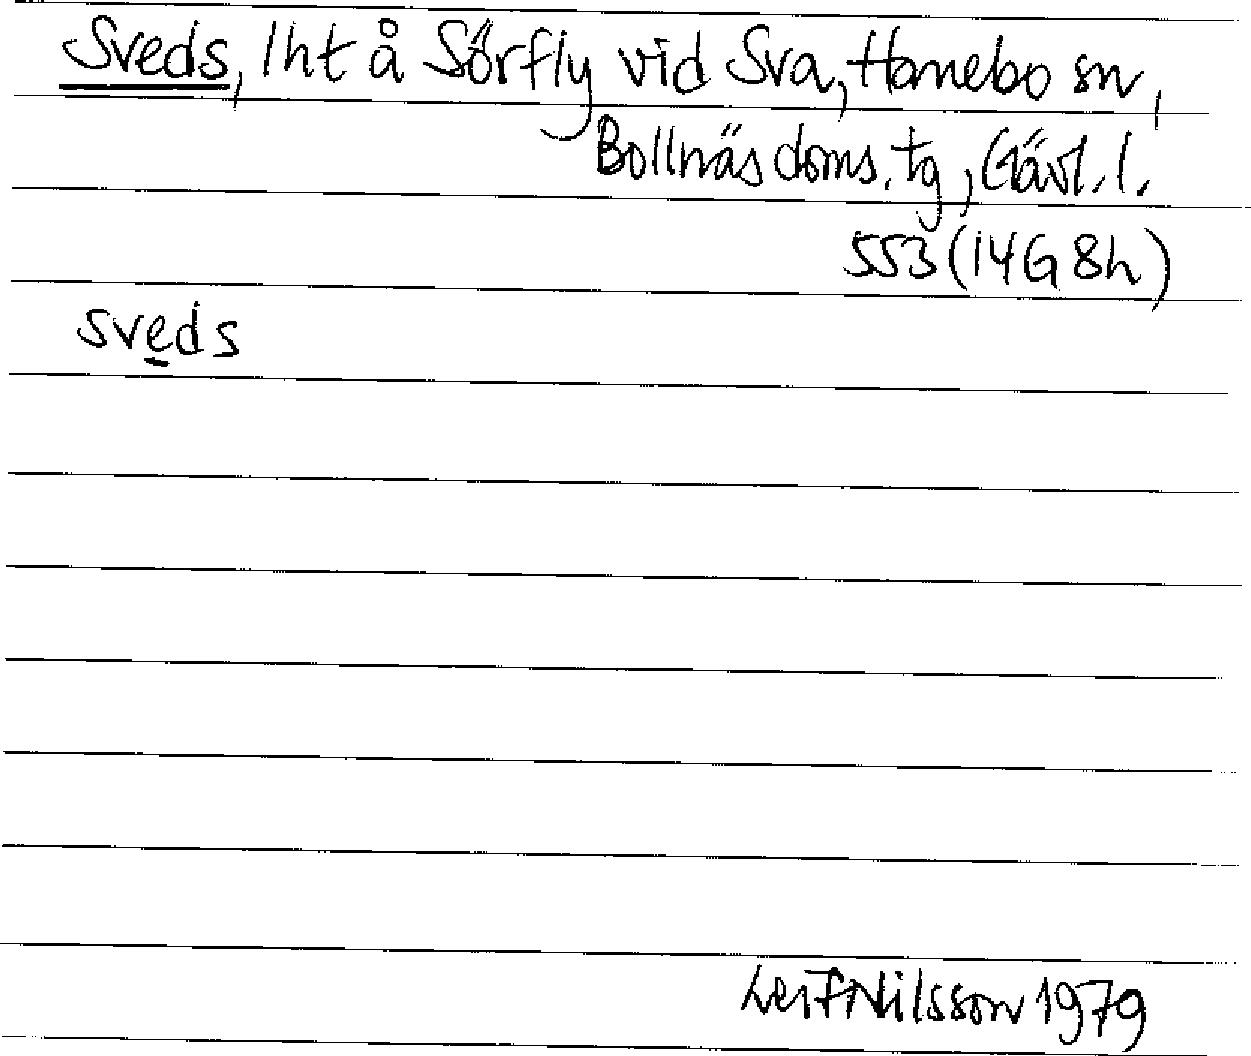 Sveds, lht å Sörfly vid Sva, Hanebo sn,
Bollnäs doms. tg, Gävl. l.
553 (14G 8h)
sveds
Leif Nilsson 1979